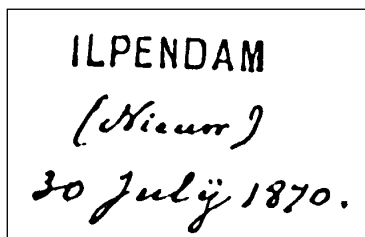 ILPENDAM
(Nieuw)
30 Julÿ 1870.